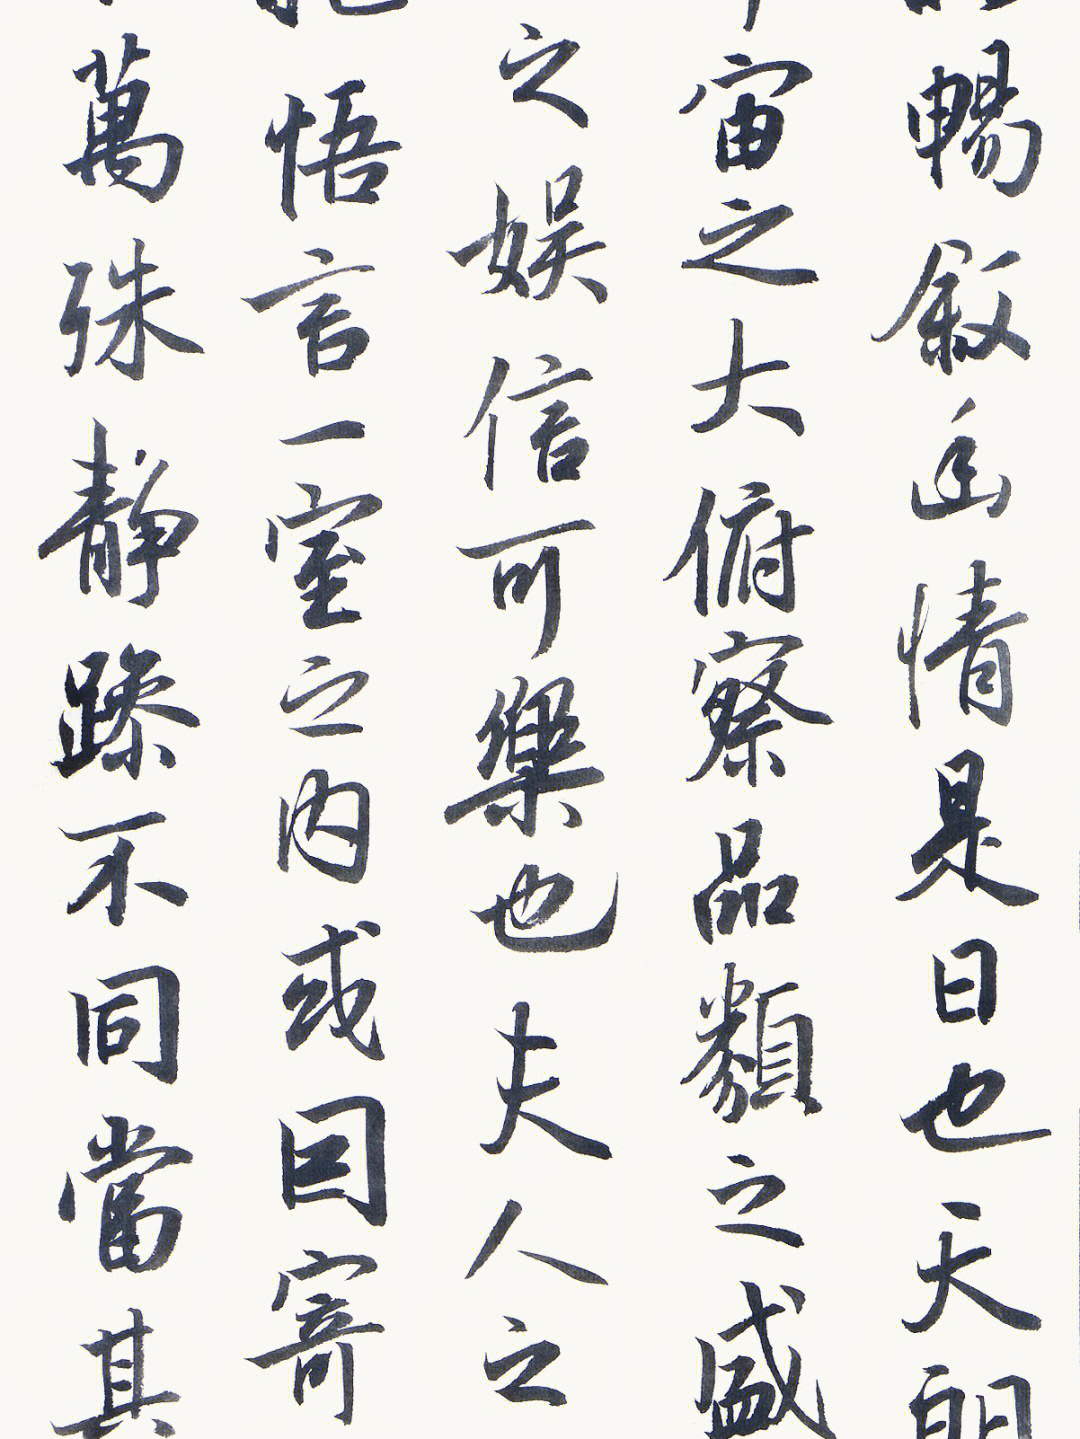 暢叙幽情是日也天朗
宙之大俯察品類之盛
之娱信可樂也夫人之
悟言一室之内或因寄
萬殊静躁不同當其